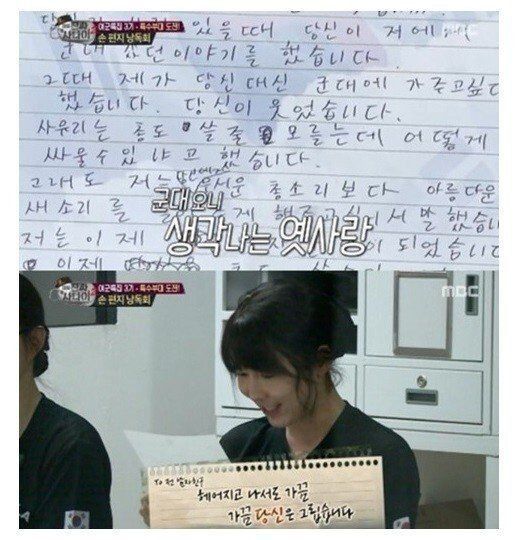 진짜 사나이
여군특집 3기 - 특수부대 도전!
손 편지 낭독회
MBC
있을때 당신이 저에게
군대 갔던 이야기를 했습니다.
그때 제가 당신 대신 군대에 가주고싶다
했습니다. 당신이 웃었습니다.
사유리는 총도 쏠 줄 모르는데 어떻게
싸울수 있냐고 했습니다.
그래도 저는 총소리보다 아름다운
새 소리를
저는 이제 되었습니다
이제
군대 오니
생각나는 옛사랑
진짜 사나이
여군특집 3기 - 특수부대 도전!
손 편지 낭독회
MBC
TO 전 남자친구
헤어지고 나서도 가끔
가끔 당신은 그립습니다